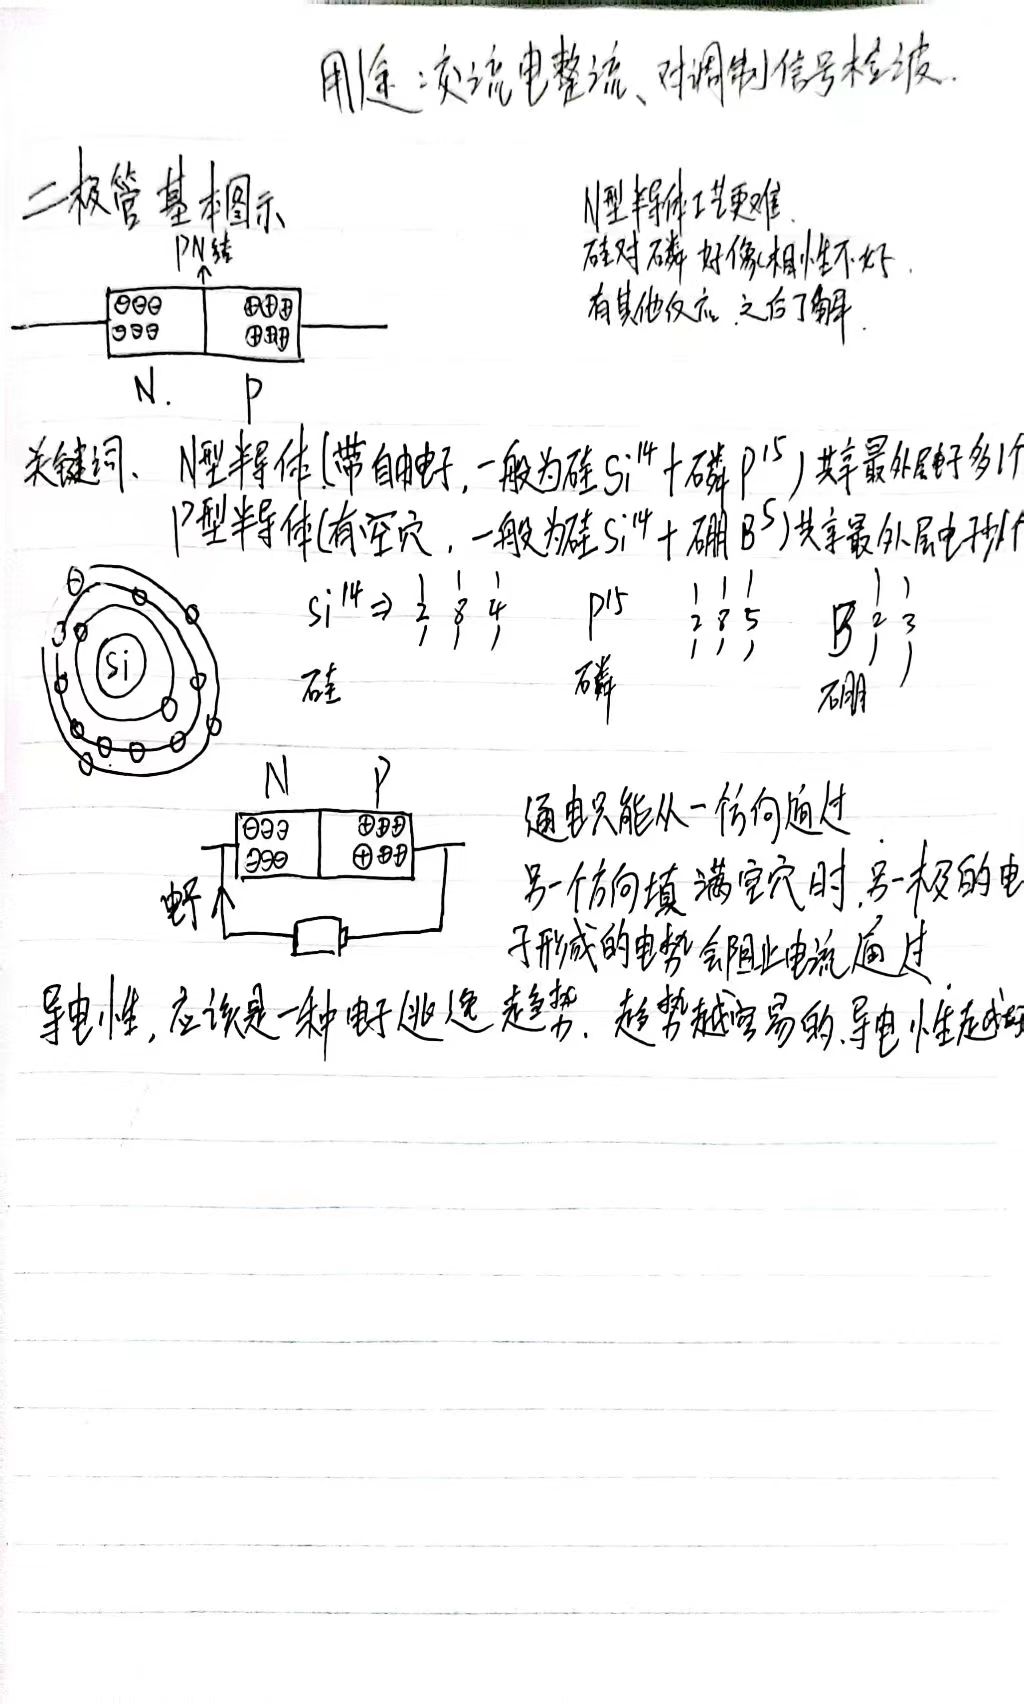 用途：交流电整流、对调制信号检波.
二极管基本图示
PN结
N型半导体工艺更难.
硅对磷好像相性不好.
有其他反应.之后了解.
N. P
关键词、N型半导体(带自由电子，一般为硅Si14+磷P15)共享最外层电子多1个
P型半导体(有空穴，一般为硅Si14+硼B5)共享最外层电子少1个
Si
Si14⇒ 2 8 4
P15 2 8 5
B 2 3
硅 磷 硼
N P
电子
通电只能从一方向通过
另一个方向填满空穴时，另一极的电
子形成的电势会阻止电流通过
导电性，应该是一种电子逃逸趋势.趋势越容易的、导电性越好